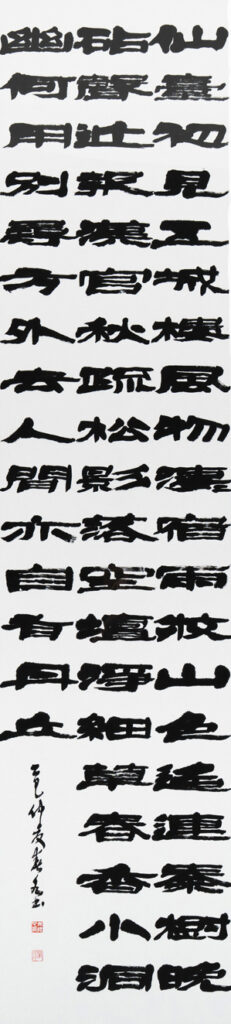 仙臺初見五城樓風物淒宿雨收山色遙連秦樹晚
砧聲近報漢宮秋疏松影落空壇淨細草春香小洞
幽何用別尋方外去人間亦自有丹丘
乙巳仲夏書